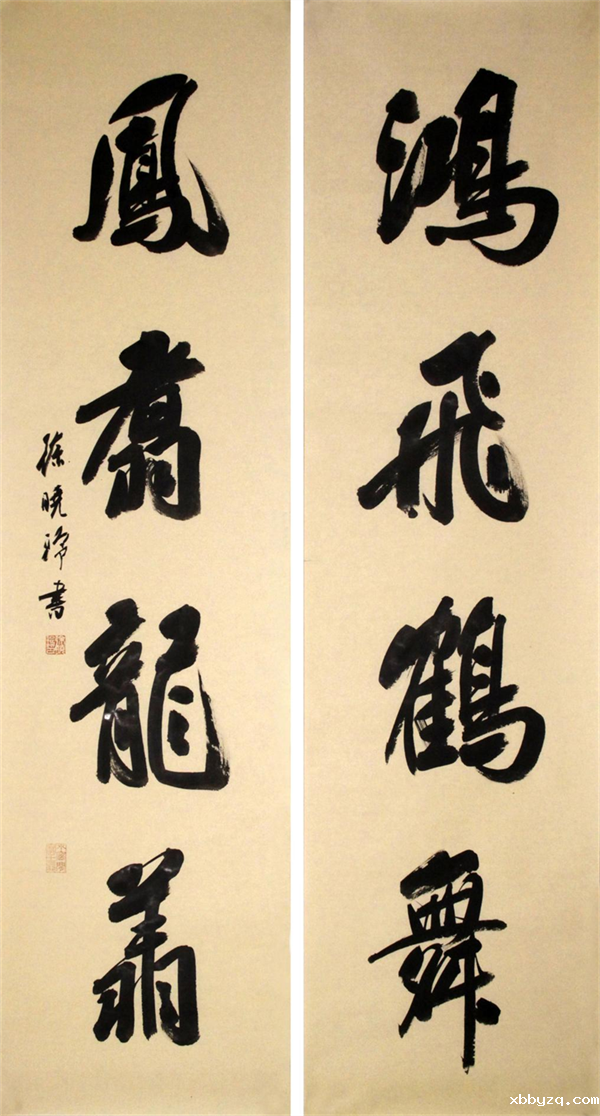 鴻飛鶴舞
鳳翥龍翔
曉 書
xbbyzq.com